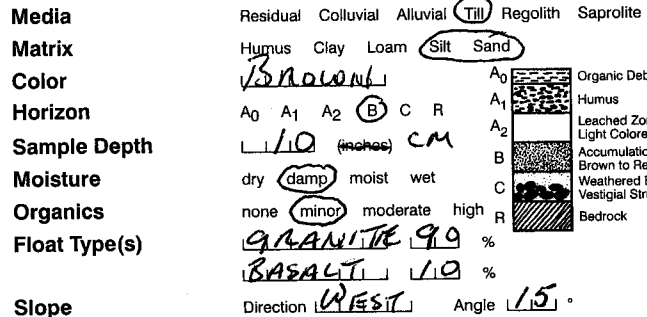 Media Residual Colluvial Alluvial Till Regolith Saprolite
Matrix Humus Clay Loam Silt Sand
Color BROWN
Horizon A0 A1 A2 B C R
Sample Depth 10 (inches) CM
Moisture dry damp moist wet
Organics none minor moderate high
Float Type(s) GRANITE 90 %
BASALT 10 %
Slope Direction WEST Angle 15 °
A0 Organic Deb
A1 Humus
A2 Leached Zo
Light Colore
B Accumulatio
Brown to Re
C Weathered
Vestigial Str
R Bedrock